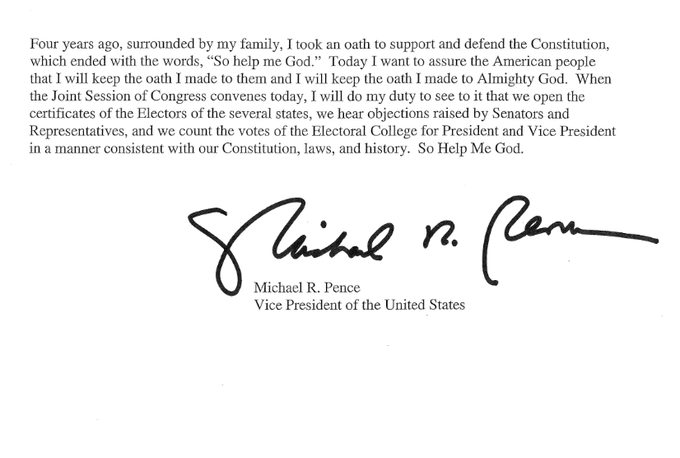 Four years ago, surrounded by my family, I took an oath to support and defend the Constitution,
which ended with the words, “So help me God.”  Today I want to assure the American people
that I will keep the oath I made to them and I will keep the oath I made to Almighty God.  When
the Joint Session of Congress convenes today, I will do my duty to see to it that we open the
certificates of the Electors of the several states, we hear objections raised by Senators and
Representatives, and we count the votes of the Electoral College for President and Vice President
in a manner consistent with our Constitution, laws, and history.  So Help Me God.
Michael R. Pence
Michael R. Pence
Vice President of the United States